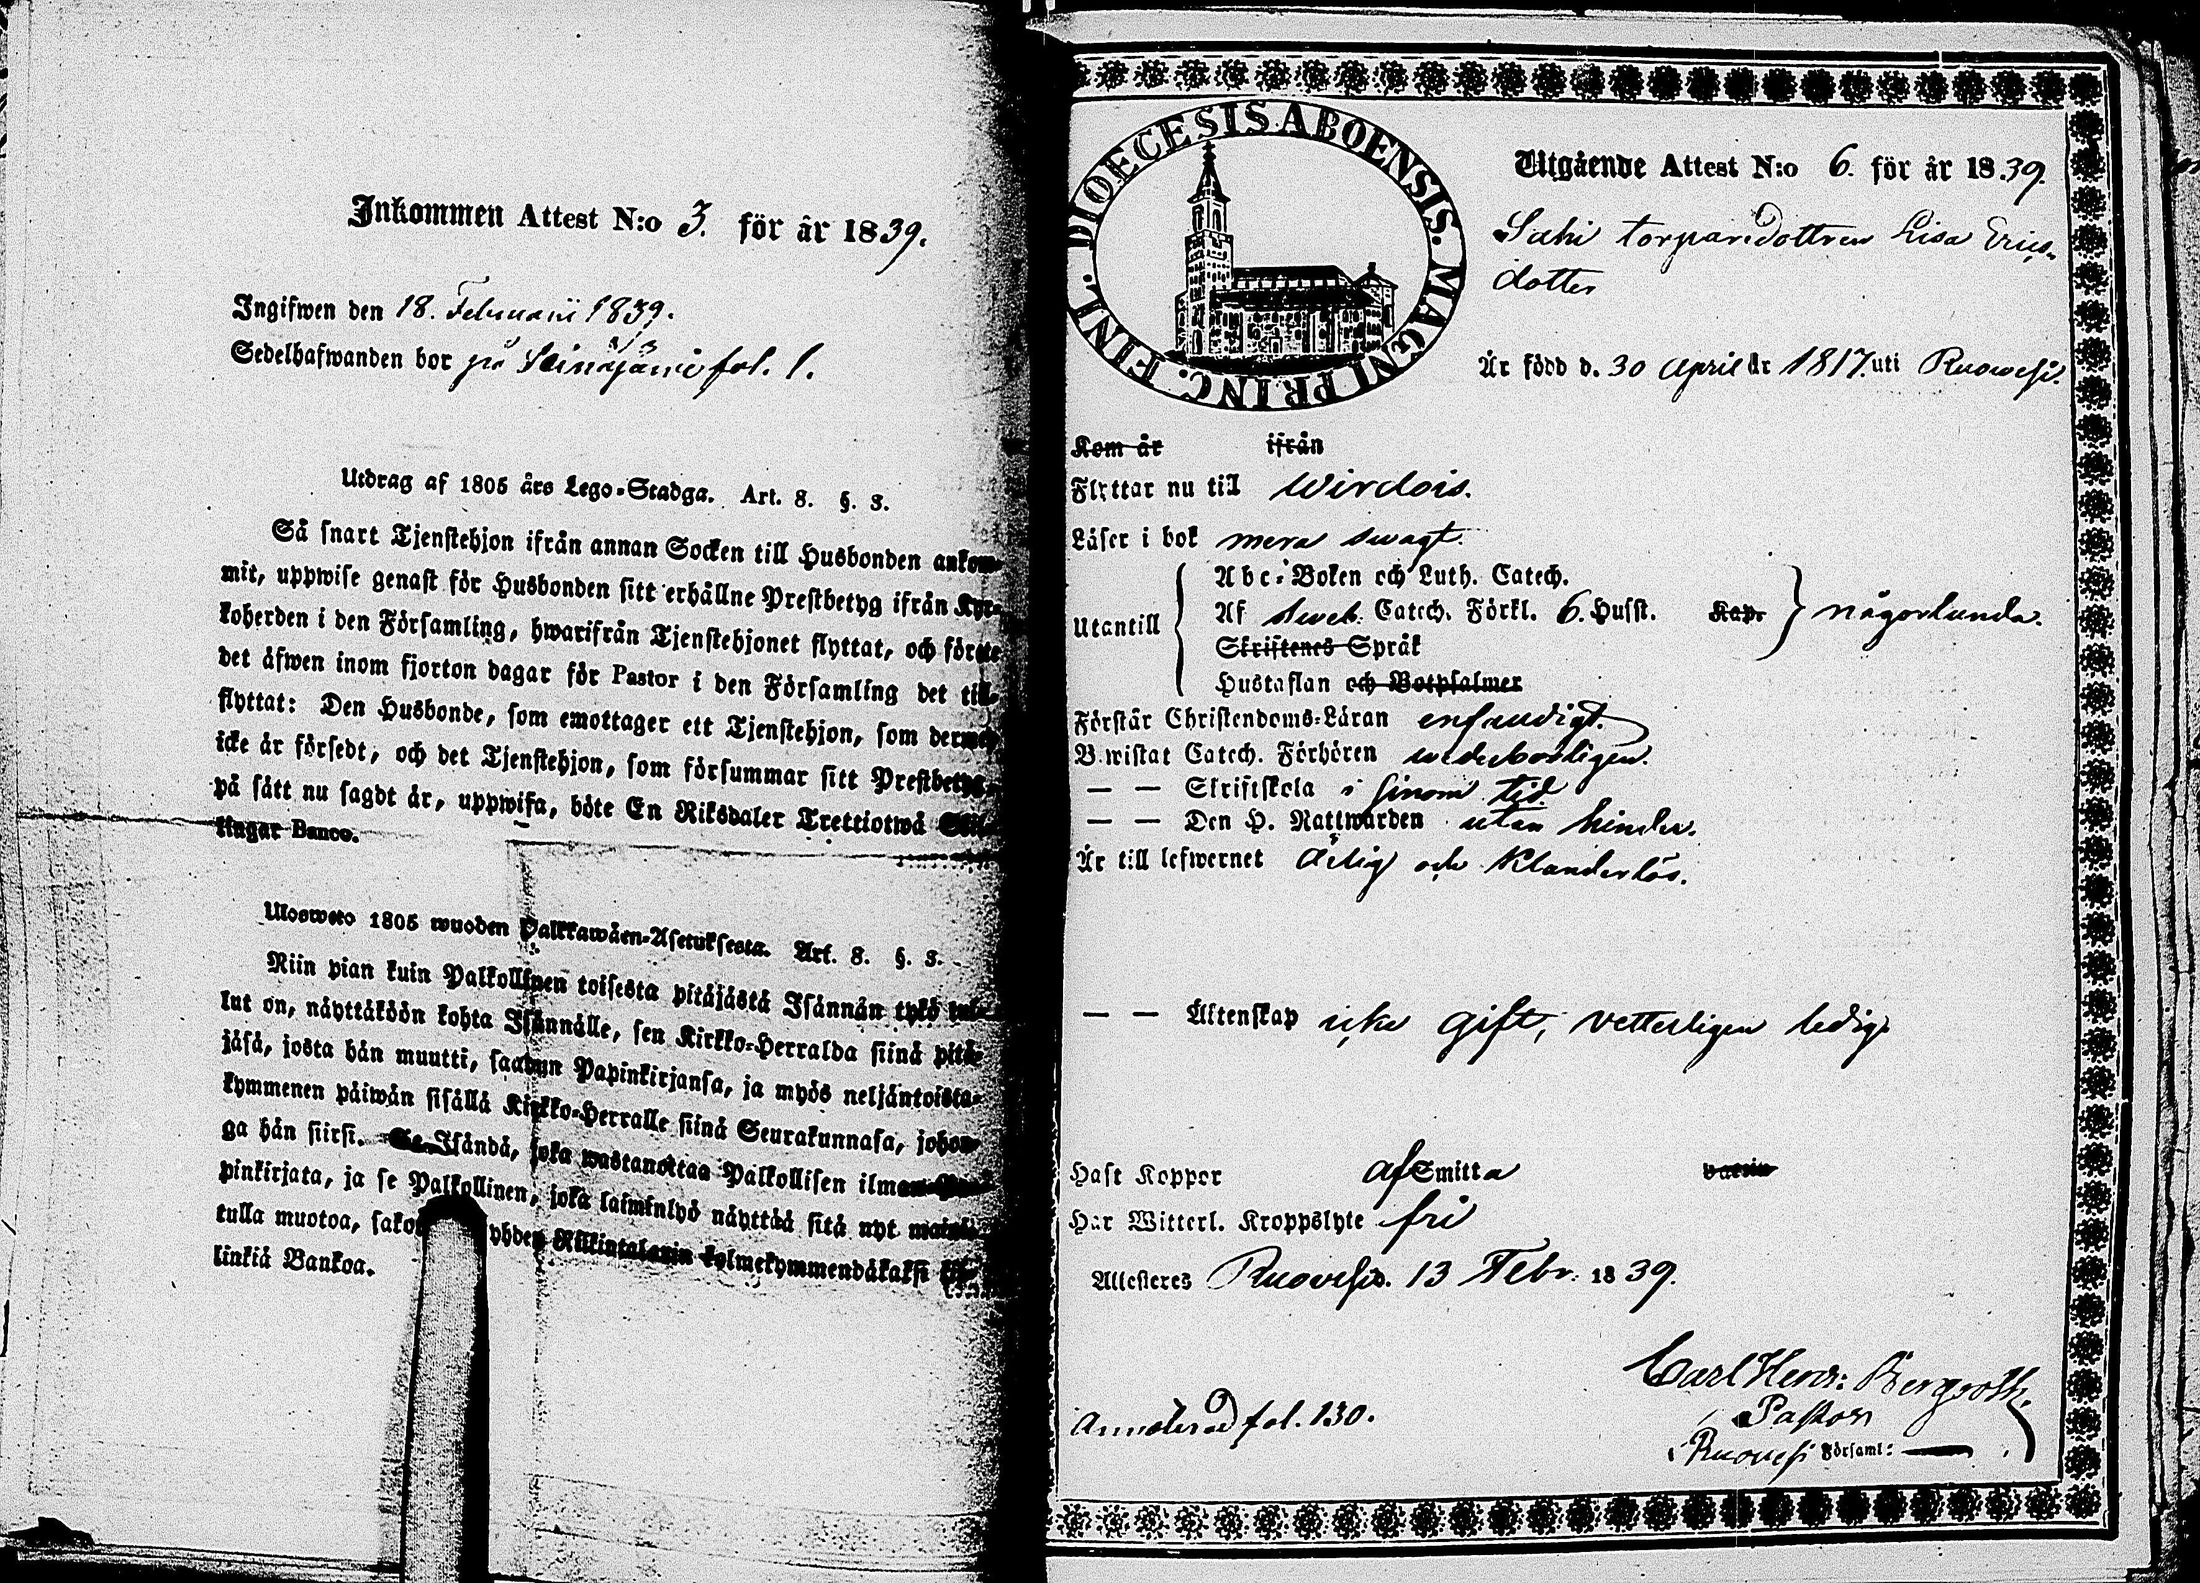 Inkommen Attest N:o 3. för år 1839.
Ingifwen den 18. Februarii 1839.
Sedelhafwanden bor på Seinäjärvi fol. 1.
Utdrag af 1805 års Lego-Stadga. Art. 8. §. 3.
Så snart Tjenstehjon ifrån annan Socken till Husbonden ankom-
mit, uppwise genast för Husbonden sitt erhållne Prestbetyg ifrån Kyr-
koherden i den Församling, hwarifrån Tjenstehjonet flyttat, och förete
det äfwen inom fjorton dagar för Pastor i den Församling det till-
flyttat: Den Husbonde, som emottager ett Tjenstehjon, som dermed
icke är försedt, och det Tjenstehjon, som försummar sitt Prestbetyg,
på sätt nu sagdt är, uppwisa, böte En Riksdaler Trettiotwå Skil-
lingar Banco.
Uloswето 1805 wuoden Palkkawäen-Asetuksesta. Art. 8. §. 3.
Niin pian kuin Palkollinen toisesta pitäjästä Isännän tykö tul-
lut on, näyttäköön kohta Isännälle, sen Kirkko-Herralda siinä pitä-
jäsä, josta hän muutti, saadun Papinkirjansa, ja myös neljäntoista-
kymmenen päiwän sisällä Kirkko-Herralle siinä Seurakunnasa, johon-
ga hän siirsi. Se Isändä, joka wastanottaa Palkollisen ilman Pa-
pinkirjata, ja se Palkollinen, joka laiminlyö näyttää sitä nyt mainit-
tulla muotoa, yhden Riikintalarin kolmekymmendäkaksi
linkiä Bankoa.
DIOECESIS ABOENSIS. MAGNI PRINC. FINL.
Utgående Attest N:o 6. för år 1839.
torparedottren Lisa Erics-
dotter
Är född d. 30 April år 1817. uti Ruowesi.
Kom år ifrån
Flyttar nu till Wirdois.
Läser i bok mera swagt.
Abc-Boken och Luth. Catech.
Utantill Af Sweb. Catech. Förkl. 6. Husst. Kap. någorlunda.
Skriftenes Språk
Hustaflan och Botpsalmer
Förstår Christendoms-Läran enfaldigt.
Bewistat Catech. Förhören wederbörligen.
— — Skriftskola i sinom tid
— — Den H. Nattwarden utan hinder.
Är till lefwernet ärlig och klanderlös.
— — Äktenskap icke gift, vetterligen ledig
Haft Koppor af Smitta vaccin
Har Witterl. Kroppslyte fri
Attesteres Ruovesi d. 13 Febr: 1839.
Carl Henr: Bergroth.
Annoterad fol. 130.
Pastor
i Ruovesi Församl: